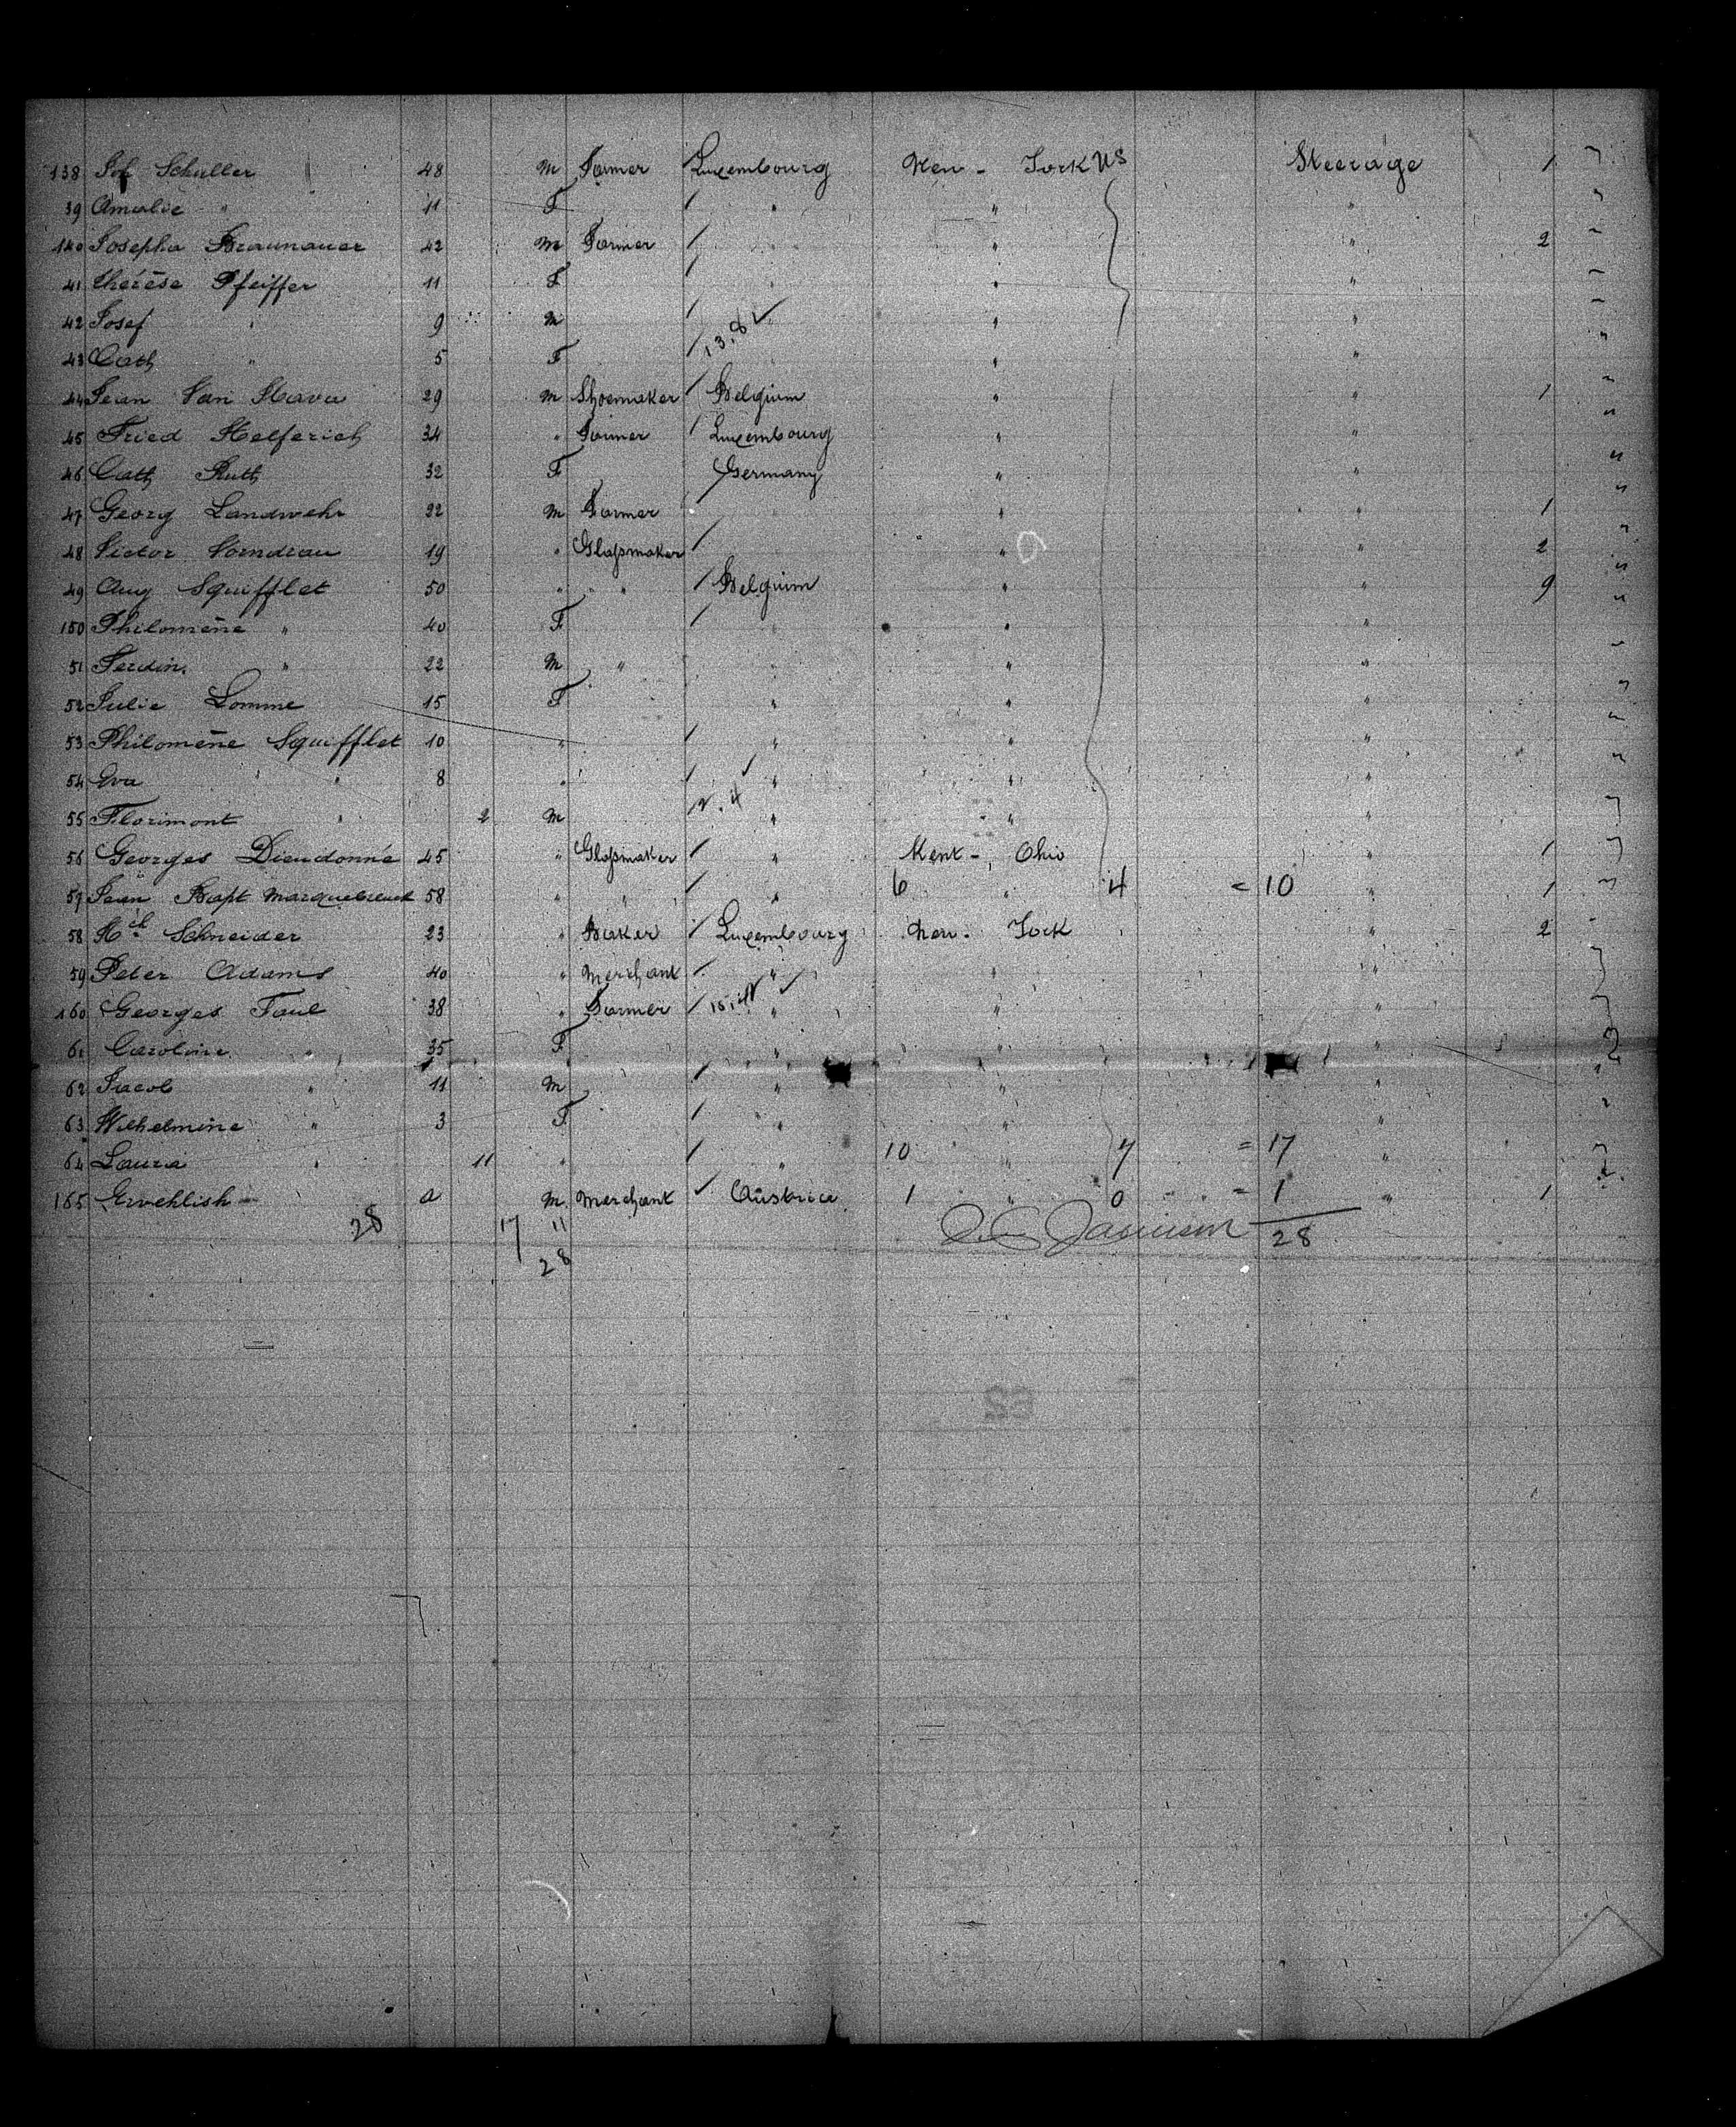 138 Jos Schuller 48 M Farmer Luxembourg New - York US Steerage 1
39 Amalie " 11 F " " "
140 Josepha Braunauer 42 M Farmer " " " 2
41 Therese Pfeiffer 11 F " " "
42 Josef " 9 M " "
43 Cath " 5 F 13.8 ✓ " "
44 Jean Van Hava 29 M Shoemaker Belgium " " 1
45 Fried Helferich 34 " Farmer Luxembourg " "
46 Cath Ruth 32 F Germany " "
47 Georg Landwehr 22 M Farmer " " 1
48 Victor 19 " Glaßmaker " " 2
49 Aug Squifflet 50 " " Belgium " " 9
150 Philomène " 40 F " " "
51 Ferdin. " 22 M " " " "
52 Julie Lomme 15 F " " "
53 Philomène Squifflet 10 " " " "
54 Eva " 8 " " " "
55 Florimont " 2 M " " "
56 Georges Dieudonné 45 " Glaßmaker " Kent - Ohio " 1
57 Jean Bapt 58 " " " 6 " 4 = 10 " 1
58 Hch Schneider 23 " Baker Luxembourg New - York " 2
59 Peter Adams 40 " Merchant " " "
160 Georges Faul 38 " Farmer " " "
61 Caroline " 35 F " " "
62 Jacob " 11 M " " "
63 Wilhelmine " 3 F " " "
64 Laura " 11 " " 10 " 7 = 17 "
165 a M Merchant Austria 1 " 0 = 1 " 1
28 17 11 28
28